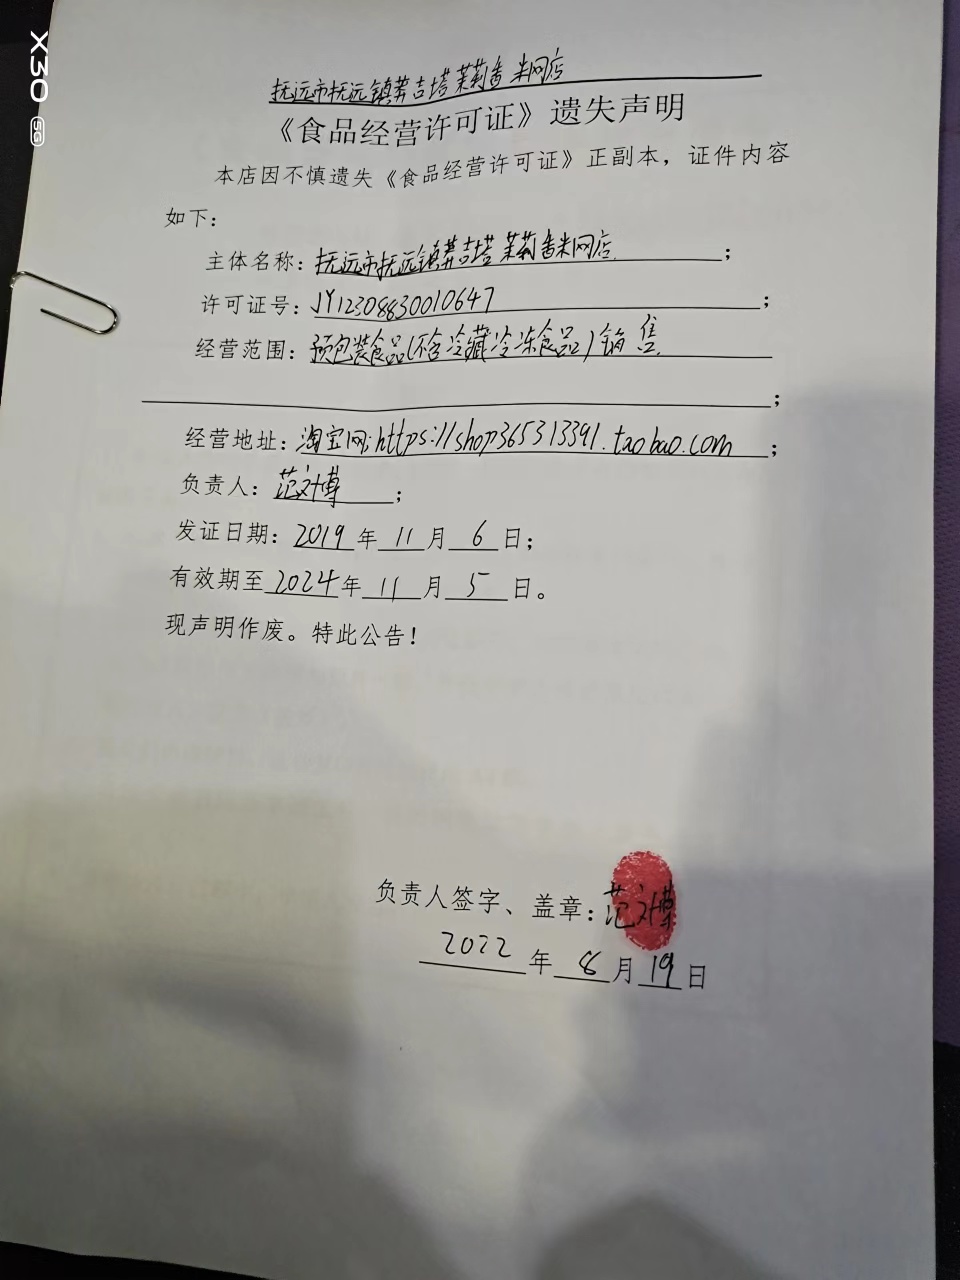 X30 5G
抚远市抚远镇莽吉塔茉莉香米网店
《食品经营许可证》遗失声明
本店因不慎遗失《食品经营许可证》正副本，证件内容
如下：
主体名称：抚远市抚远镇莽吉塔茉莉香米网店；
许可证号：JY12308830010647；
经营范围：预包装食品(不含冷藏冷冻食品)销售
；
经营地址：淘宝网:https://shop365313391.taobao.com；
负责人：范文博；
发证日期：2019年11月6日；
有效期至2024年11月5日。
现声明作废。特此公告！
负责人签字、盖章：范文博
2022年8月19日